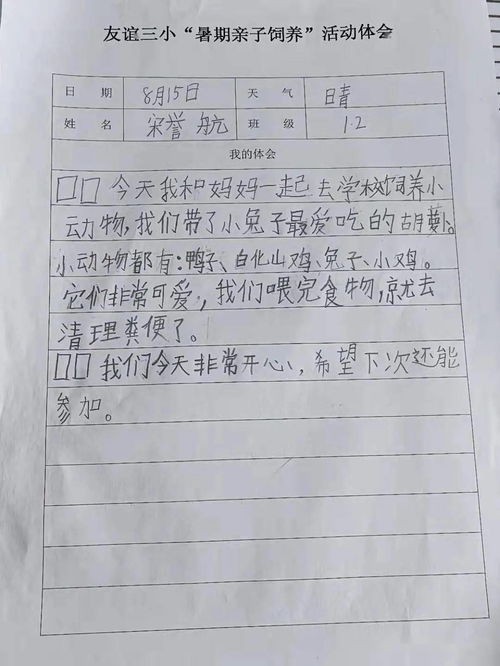 友谊三小“暑期亲子饲养”活动体会
日 期 8月15日 天 气 晴
姓 名 宋誉航 班 级 1.2
我的体会
□□今天我和妈妈一起去学校饲养小
动物，我们带了小兔子最爱吃的胡萝卜。
小动物都有：鸭子、白化山鸡、兔子、小鸡。
它们非常可爱，我们喂完食物，就去
清理粪便了。
□□我们今天非常开心，希望下次还能
参加。